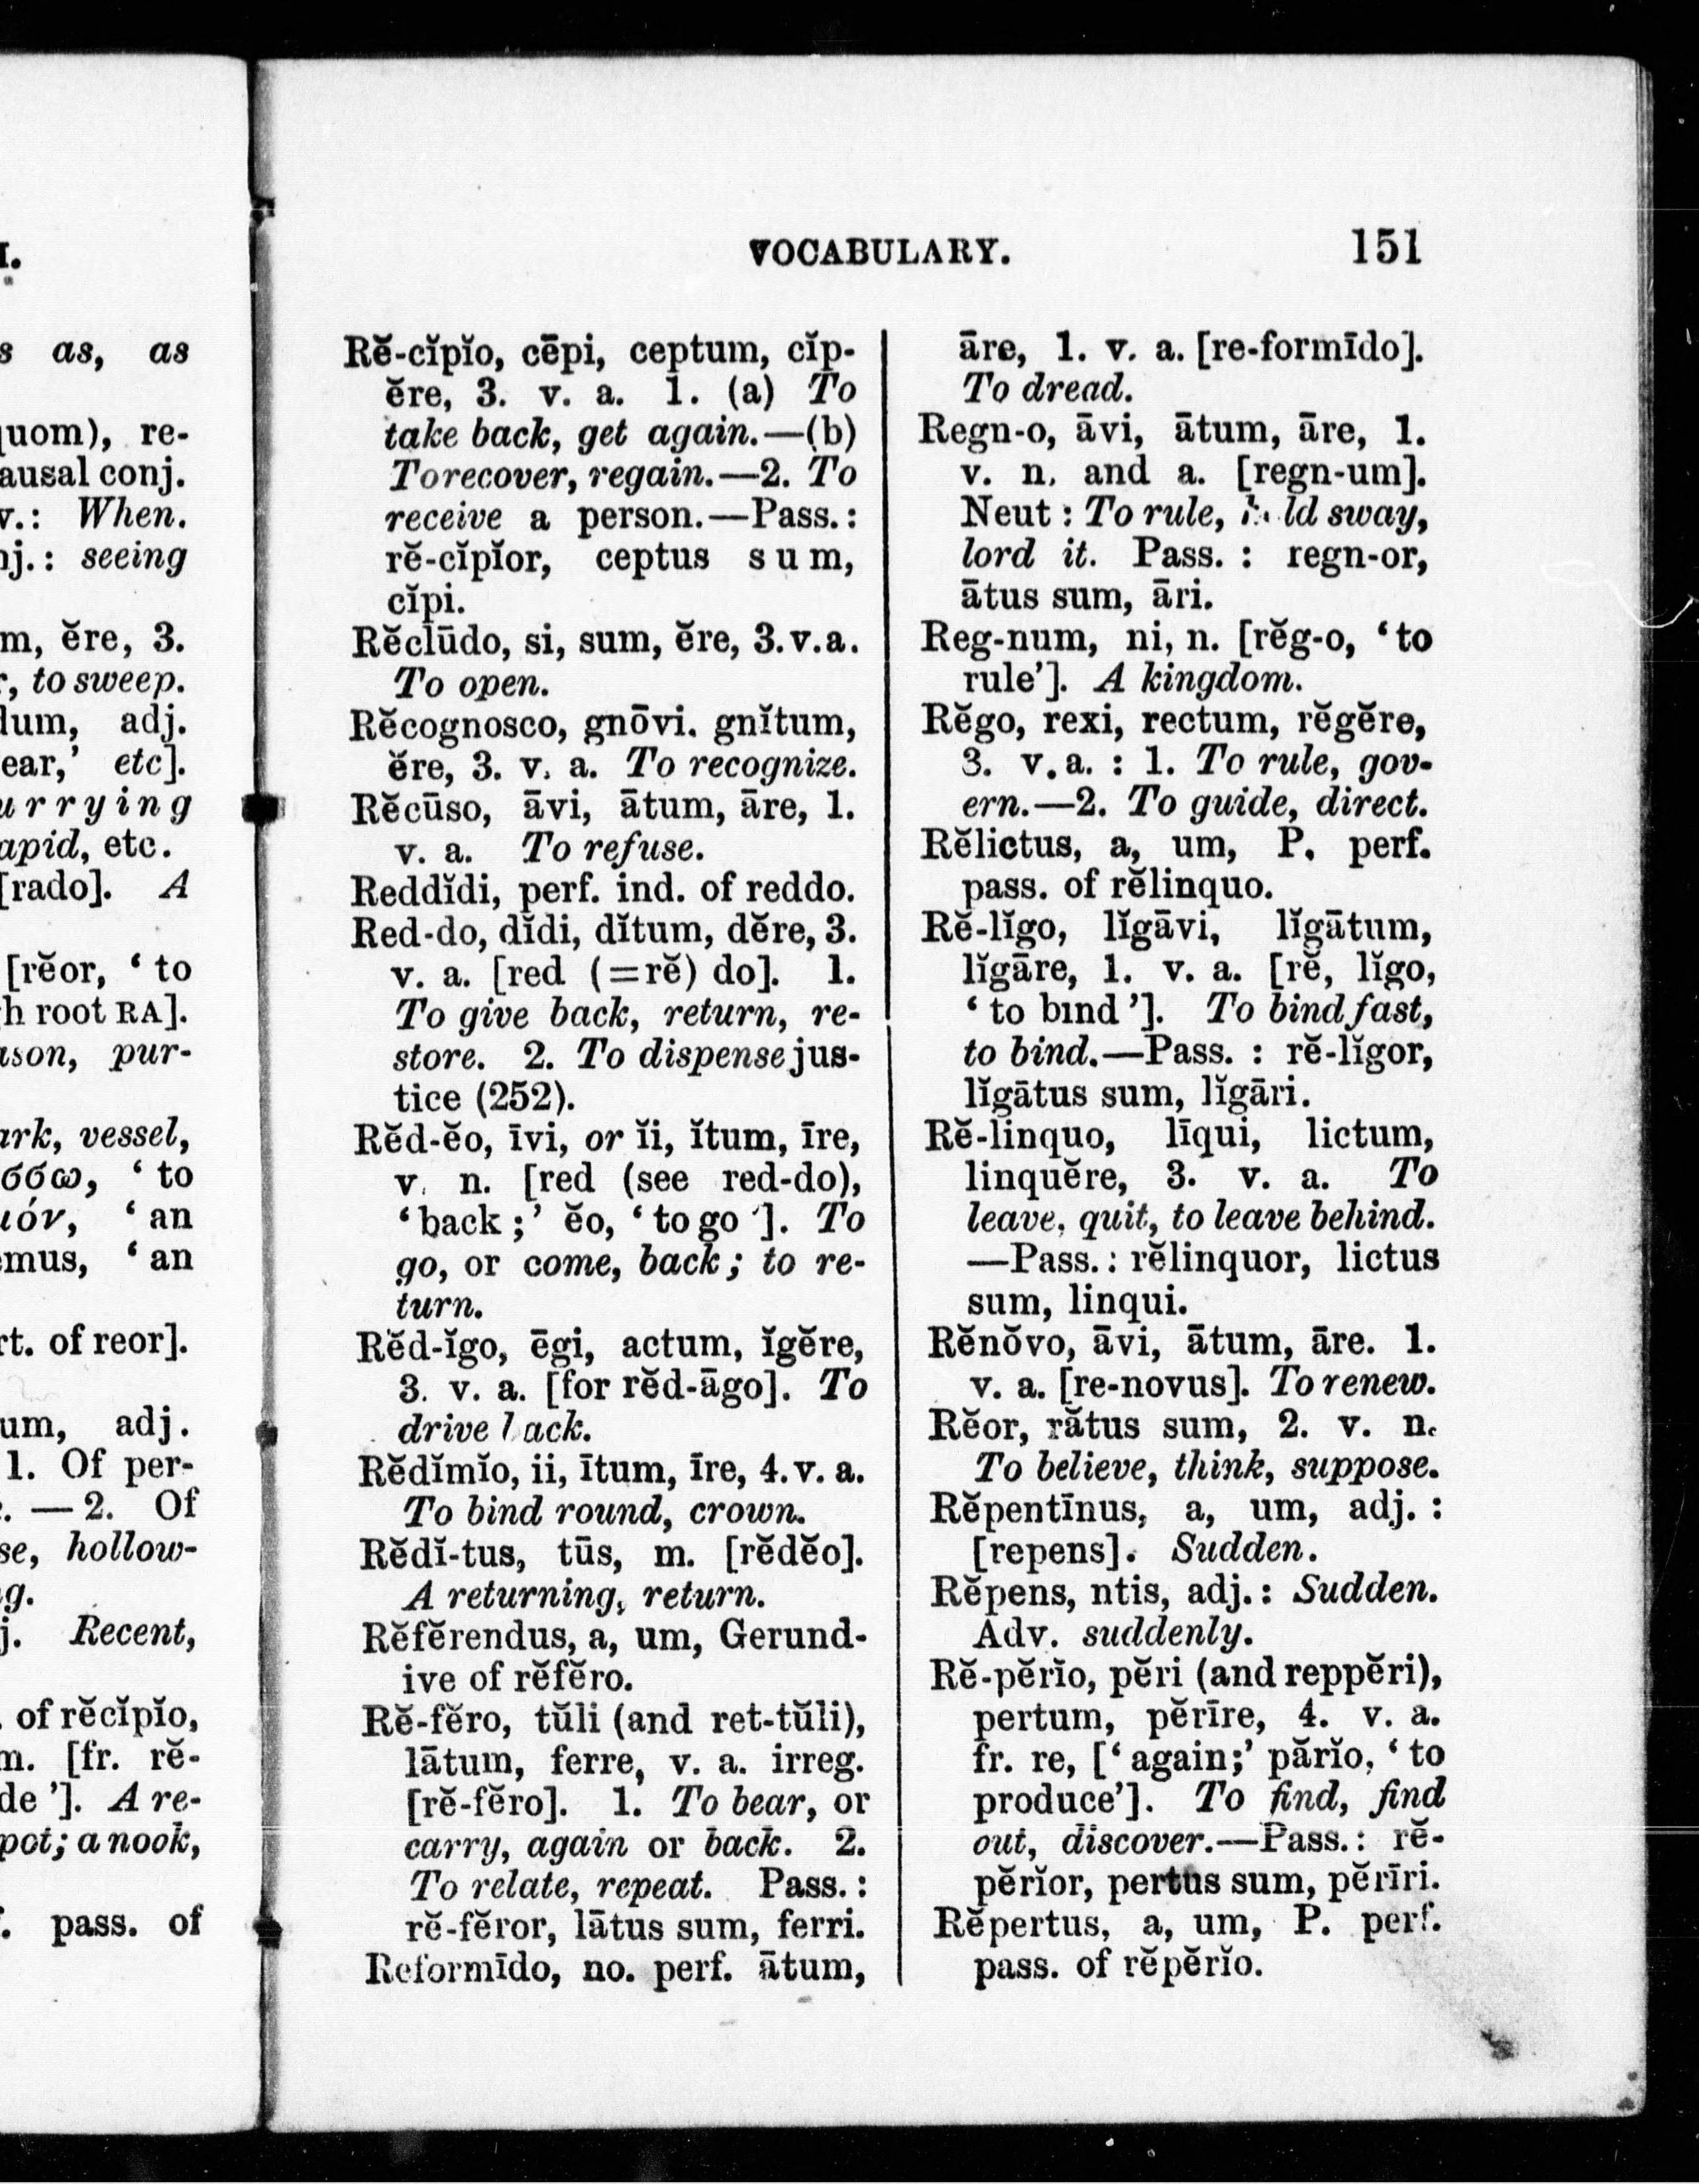 I.
s as, as
quom), re-
ausal conj.
v.: When.
nj.: seeing
m, ĕre, 3.
r, to sweep.
dum, adj.
ear,' etc].
urrying
apid, etc.
[rado]. A
[rĕor, ' to
h root RA].
ason, pur-
ark, vessel,
σσω, ' to
ιόν, ' an
emus, ' an
rt. of reor].
um, adj.
1. Of per-
. — 2. Of
se, hollow-
g.
j. Recent,
. of rĕcĭpĭo,
m. [fr. rĕ-
de ']. A re-
pot; a nook,
. pass. of
VOCABULARY. 151
Rĕ-cĭpĭo, cēpi, ceptum, cĭp-
ĕre, 3. v. a. 1. (a) To
take back, get again.—(b)
To recover, regain.—2. To
receive a person.—Pass.:
rĕ-cĭpĭor, ceptus sum,
cĭpi.
Rĕclūdo, si, sum, ĕre, 3. v. a.
To open.
Rĕcognosco, gnōvi. gnĭtum,
ĕre, 3. v. a. To recognize.
Rĕcūso, āvi, ātum, āre, 1.
v. a. To refuse.
Reddĭdi, perf. ind. of reddo.
Red-do, dĭdi, dĭtum, dĕre, 3.
v. a. [red (=rĕ) do]. 1.
To give back, return, re-
store. 2. To dispense jus-
tice (252).
Rĕd-ĕo, īvi, or ĭi, ĭtum, īre,
v. n. [red (see red-do),
'back ;' ĕo, ' to go ']. To
go, or come, back ; to re-
turn.
Rĕd-ĭgo, ēgi, actum, ĭgĕre,
3. v. a. [for rĕd-āgo]. To
drive back.
Rĕdĭmĭo, ii, ītum, īre, 4. v. a.
To bind round, crown.
Rĕdĭ-tus, tūs, m. [rĕdĕo].
A returning, return.
Rĕfĕrendus, a, um, Gerund-
ive of rĕfĕro.
Rĕ-fĕro, tŭli (and ret-tŭli),
lātum, ferre, v. a. irreg.
[rĕ-fĕro]. 1. To bear, or
carry, again or back. 2.
To relate, repeat. Pass. :
rĕ-fĕror, lātus sum, ferri.
Reformīdo, no. perf. ātum,
āre, 1. v. a. [re-formīdo].
To dread.
Regn-o, āvi, ātum, āre, 1.
v. n. and a. [regn-um].
Neut : To rule, hold sway,
lord it. Pass. : regn-or,
ātus sum, āri.
Reg-num, ni, n. [rĕg-o, ' to
rule']. A kingdom.
Rĕgo, rexi, rectum, rĕgĕre,
3. v. a. : 1. To rule, gov-
ern.—2. To guide, direct.
Rĕlictus, a, um, P. perf.
pass. of rĕlinquo.
Rĕ-lĭgo, lĭgāvi, lĭgātum,
lĭgāre, 1. v. a. [rĕ, lĭgo,
' to bind ']. To bind fast,
to bind.—Pass. : rĕ-lĭgor,
lĭgātus sum, lĭgāri.
Rĕ-linquo, līqui, lictum,
linquĕre, 3. v. a. To
leave, quit, to leave behind.
—Pass. : rĕlinquor, lictus
sum, linqui.
Rĕnŏvo, āvi, ātum, āre. 1.
v. a. [re-novus]. To renew.
Rĕor, rătus sum, 2. v. n.
To believe, think, suppose.
Rĕpentīnus, a, um, adj. :
[repens]. Sudden.
Rĕpens, ntis, adj. : Sudden.
Adv. suddenly.
Rĕ-pĕrĭo, pĕri (and reppĕri),
pertum, pĕrīre, 4. v. a.
fr. re, [' again;' părĭo, ' to
produce']. To find, find
out, discover.—Pass. : rĕ-
pĕrĭor, pertus sum, pĕrīri.
Rĕpertus, a, um, P. perf.
pass. of rĕpĕrĭo.